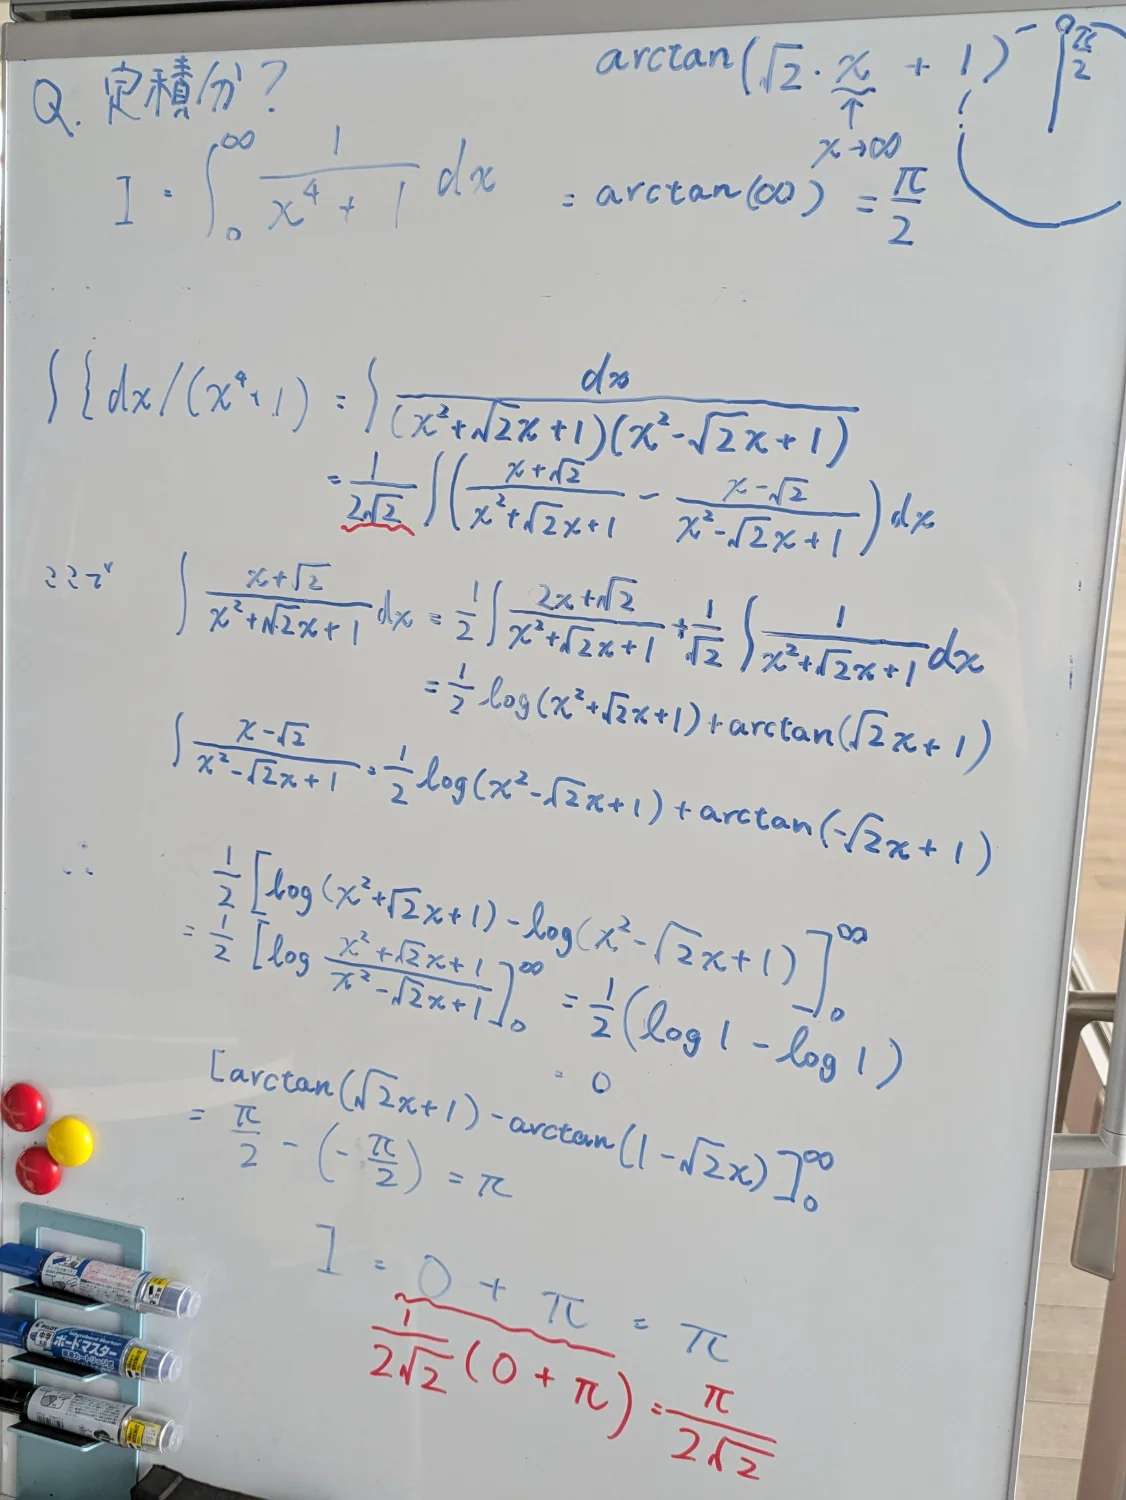 Q. 定積分?
I = ∫₀^∞ 1/(x⁴ + 1) dx
arctan(√2・x + 1)
↑
x→∞
= arctan(∞) = π/2
π/2
∫{dx/(x⁴+1) = ∫ dx/((x²+√2x+1)(x²-√2x+1))
= 1/(2√2) ∫((x+√2)/(x²+√2x+1) - (x-√2)/(x²-√2x+1))dx
ここで ∫ (x+√2)/(x²+√2x+1) dx = 1/2 ∫ (2x+√2)/(x²+√2x+1) + 1/√2 ∫ 1/(x²+√2x+1) dx
= 1/2 log(x²+√2x+1) + arctan(√2x+1)
∫ (x-√2)/(x²-√2x+1) = 1/2 log(x²-√2x+1) + arctan(-√2x+1)
∴ 1/2 [log(x²+√2x+1) - log(x²-√2x+1)]₀^∞
= 1/2 [log (x²+√2x+1)/(x²-√2x+1)]₀^∞ = 1/2 (log 1 - log 1)
= 0
[arctan(√2x+1) - arctan(1-√2x)]₀^∞
= π/2 - (-π/2) = π
I = 0 + π = π
1/(2√2) (0 + π) = π/(2√2)
PILOT
ボードマスター